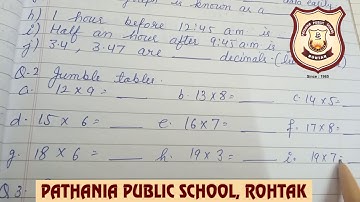 graph is known as a
h) 1 hour before 12:45 am is
i) Half an hour after 9:45 am is
j) 3.4, 3.47 are ___ decimals.
Q-2 Jumble tables.
a. 12 × 9 = ___ b. 13×8= ___ c. 14×5=
d. 15 × 6 = ___ e. 16×7= ___ f. 17×8=
g. 18 × 6 = ___ h. 19×3 = ___ i. 19×7=
Q 3:
PATHANIA PUBLIC SCHOOL
ROHTAK
Since : 1985
PATHANIA PUBLIC SCHOOL, ROHTAK